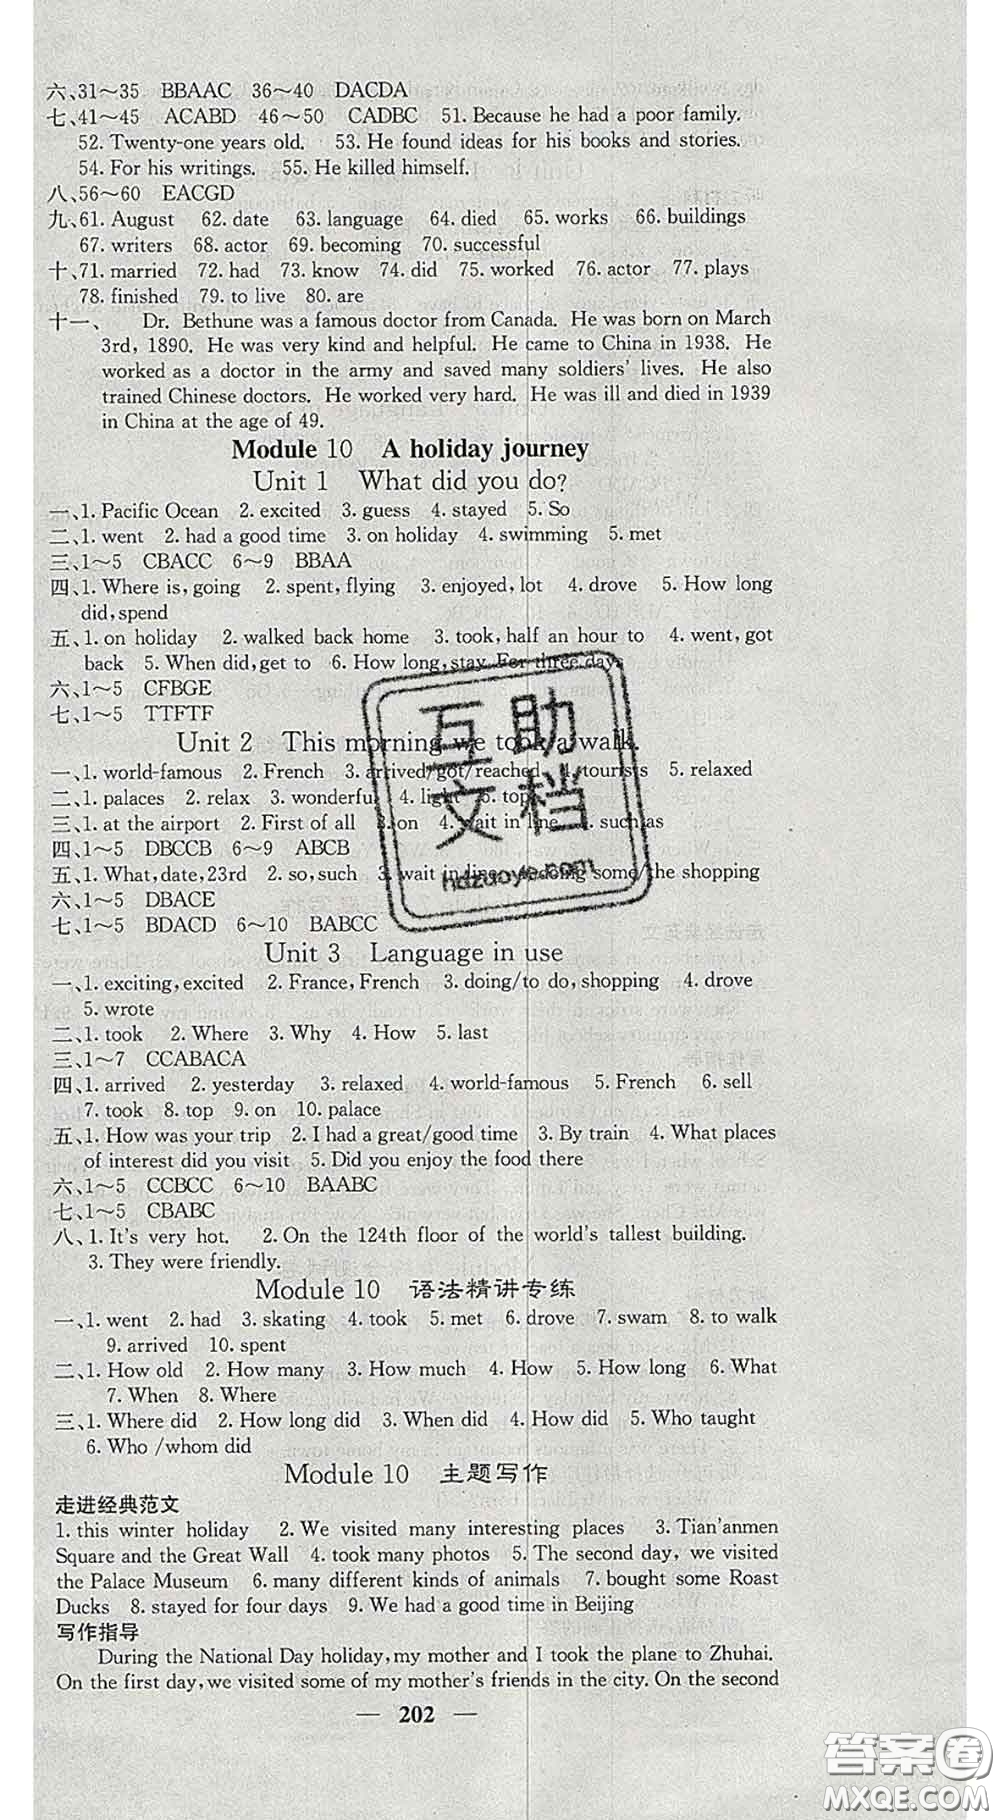 六、31～35　BBAAC　36～40　DACDA
七、41～45　ACABD　46～50　CADBC　51. Because he had a poor family.
52. Twenty-one years old.　53. He found ideas for his books and stories.
54. For his writings.　55. He killed himself.
八、56～60　EACGD
九、61. August　62. date　63. language　64. died　65. works　66. buildings
67. writers　68. actor　69. becoming　70. successful
十、71. married　72. had　73. know　74. did　75. worked　76. actor　77. plays
78. finished　79. to live　80. are
十一、　Dr. Bethune was a famous doctor from Canada. He was born on March
3rd, 1890. He was very kind and helpful. He came to China in 1938. He
worked as a doctor in the army and saved many soldiers' lives. He also
trained Chinese doctors. He worked very hard. He was ill and died in 1939
in China at the age of 49.
Module 10　A holiday journey
Unit 1　What did you do?
一、1. Pacific Ocean　2. excited　3. guess　4. stayed　5. So
二、1. went　2. had a good time　3. on holiday　4. swimming　5. met
三、1～5　CBACC　6～9　BBAA
四、1. Where is, going　2. spent, flying　3. enjoyed, lot　4. drove　5. How long
did, spend
五、1. on holiday　2. walked back home　3. took, half an hour to　4. went, got
back　5. When did, get to　6. How long, stay, For three days
六、1～5　CFBGE
七、1～5　TTFTF
Unit 2　This morning we took a walk.
一、1. world-famous　2. French　3. arrived/got/reached　4. tourists　5. relaxed
二、1. palaces　2. relax　3. wonderful　4. light　5. top
三、1. at the airport　2. First of all　3. on　4. wait in line　5. such as
四、1～5　DBCCB　6～9　ABCB
五、1. What, date, 23rd　2. so, such　3. wait in line　4. doing some/the shopping
六、1～5　DBACE
七、1～5　BDACD　6～10　BABCC
Unit 3　Language in use
一、1. exciting, excited　2. France, French　3. doing/to do, shopping　4. drove
5. wrote
二、1. took　2. Where　3. Why　4. How　5. last
三、1～7　CCABACA
四、1. arrived　2. yesterday　3. relaxed　4. world-famous　5. French　6. sell
7. took　8. top　9. on　10. palace
五、1. How was your trip　2. I had a great/good time　3. By train　4. What places
of interest did you visit　5. Did you enjoy the food there
六、1～5　CCBCC　6～10　BAABC
七、1～5　CBABC
八、1. It's very hot.　2. On the 124th floor of the world's tallest building.
3. They were friendly.
Module 10　语法精讲专练
一、1. went　2. had　3. skating　4. took　5. met　6. drove　7. swam　8. to walk
9. arrived　10. spent
二、1. How old　2. How many　3. How much　4. How　5. How long　6. What
7. When　8. Where
三、1. Where did　2. How long did　3. When did　4. How did　5. Who taught
6. Who /whom did
Module 10　主题写作
走进经典范文
1. this winter holiday　2. We visited many interesting places　3. Tian'anmen
Square and the Great Wall　4. took many photos　5. The second day, we visited
the Palace Museum　6. many different kinds of animals　7. bought some Roast
Ducks　8. stayed for four days　9. We had a good time in Beijing
写作指导
During the National Day holiday, my mother and I took the plane to Zhuhai.
On the first day, we visited some of my mother's friends in the city. On the second
— 202 —
互助
文档
hdzuoye.com
答案圈
MXQE.COM